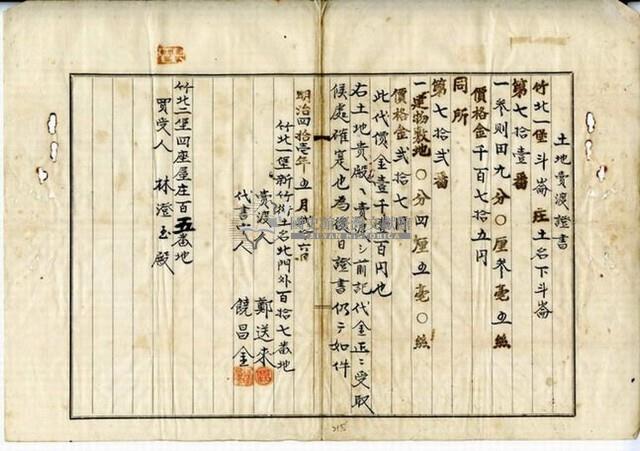 土地賣渡證書
竹北一堡斗崙庄土名下斗崙
第七拾壹番
一參則田九分〇厘參毫五絲
價格金千百七拾五円
同所
第七拾弍番
一建物敷地〇分四厘五毫〇絲
價格金弍拾七
此代價金壹千百円也
右土地貴殿ヘ賣渡シ前記代金正ニ受取
候處確寔也為後日證書仍テ如件
明治四拾壹年五月六日
竹北一堡新竹街土名北門外百拾七番地
賣渡人 鄭送來
代書人 饒昌金
竹北二堡四座屋庄百五番地
買受人 林澄玉殿
315
TAIWAN HISTORICA